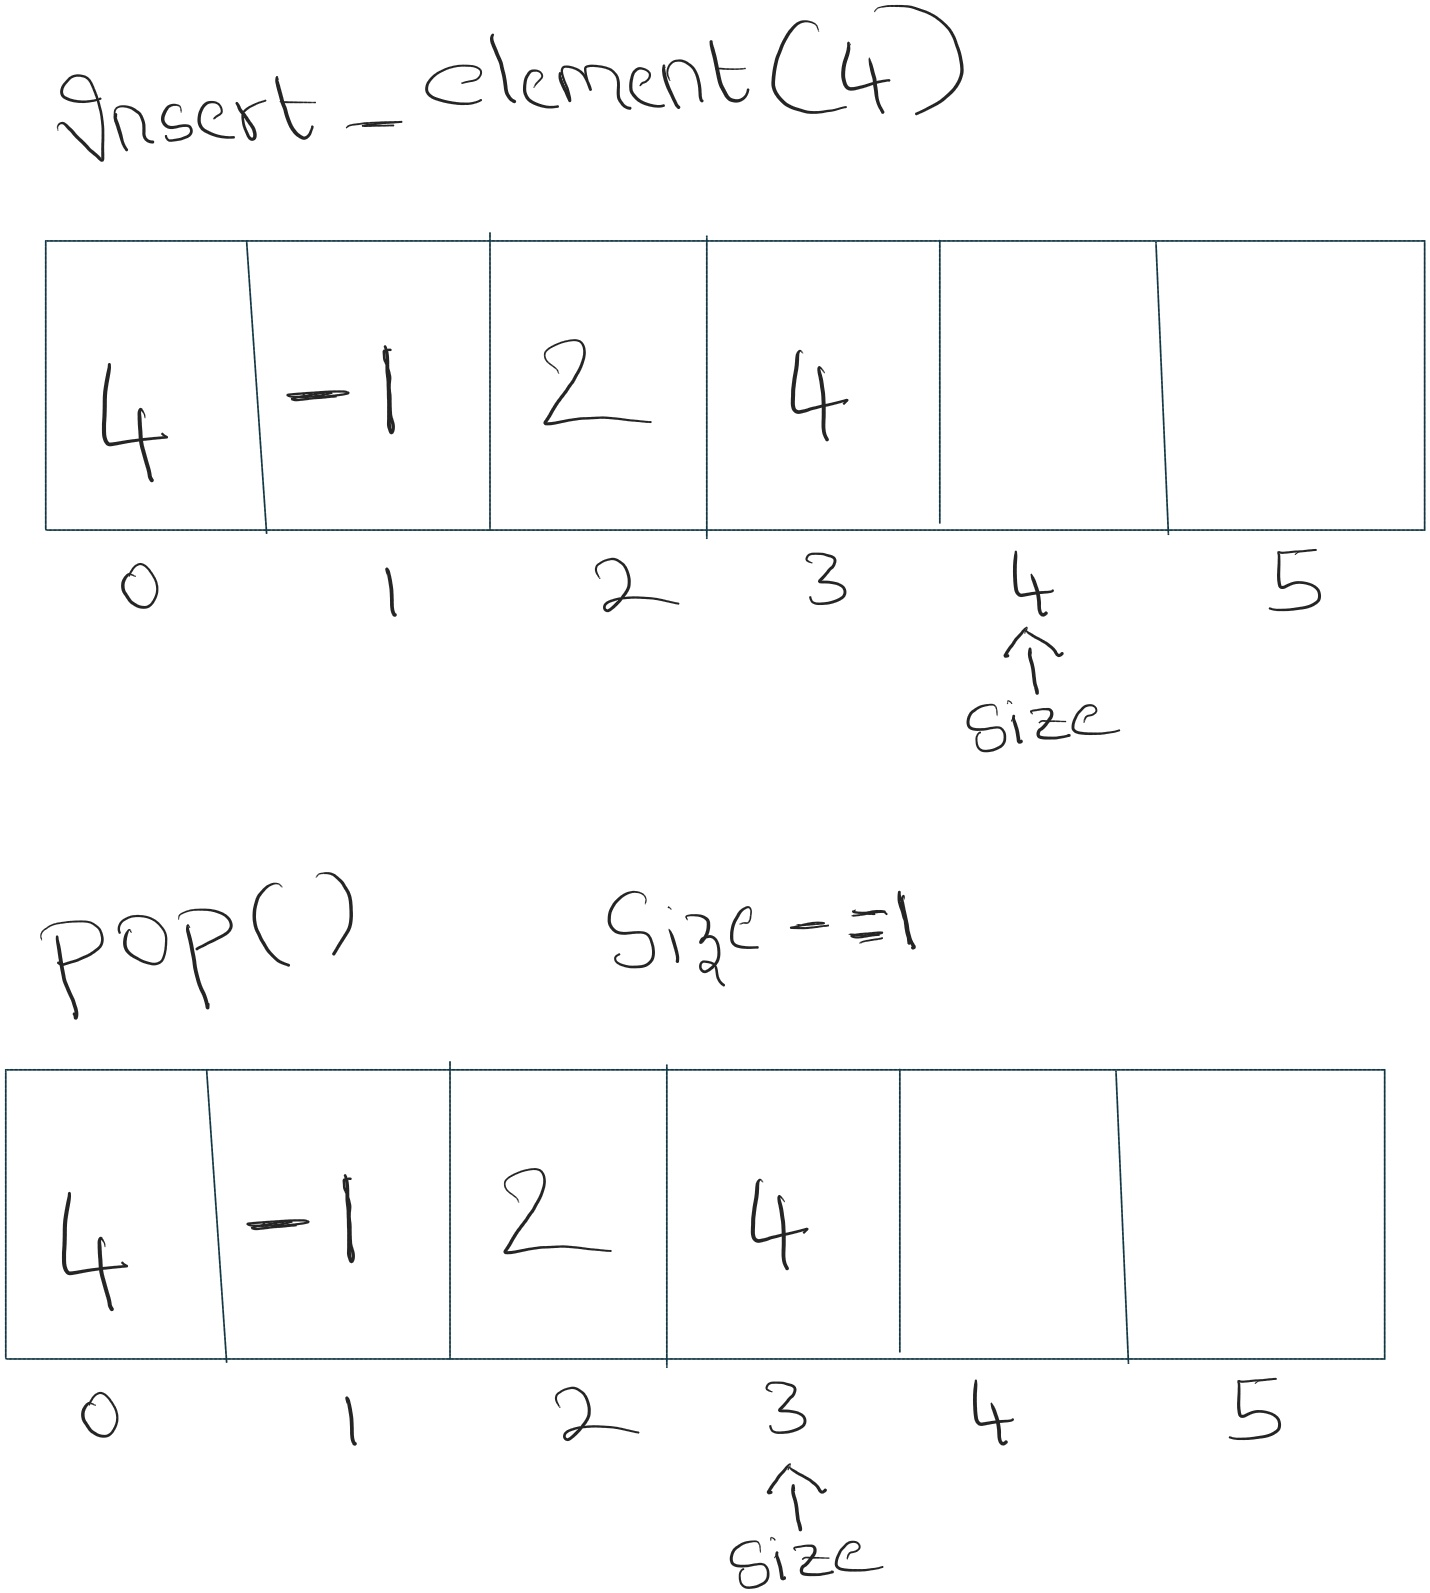 Insert_element(4)
4 -1 2 4
0 1 2 3 4 5
size
pop() Size-=1
4 -1 2 4
0 1 2 3 4 5
size